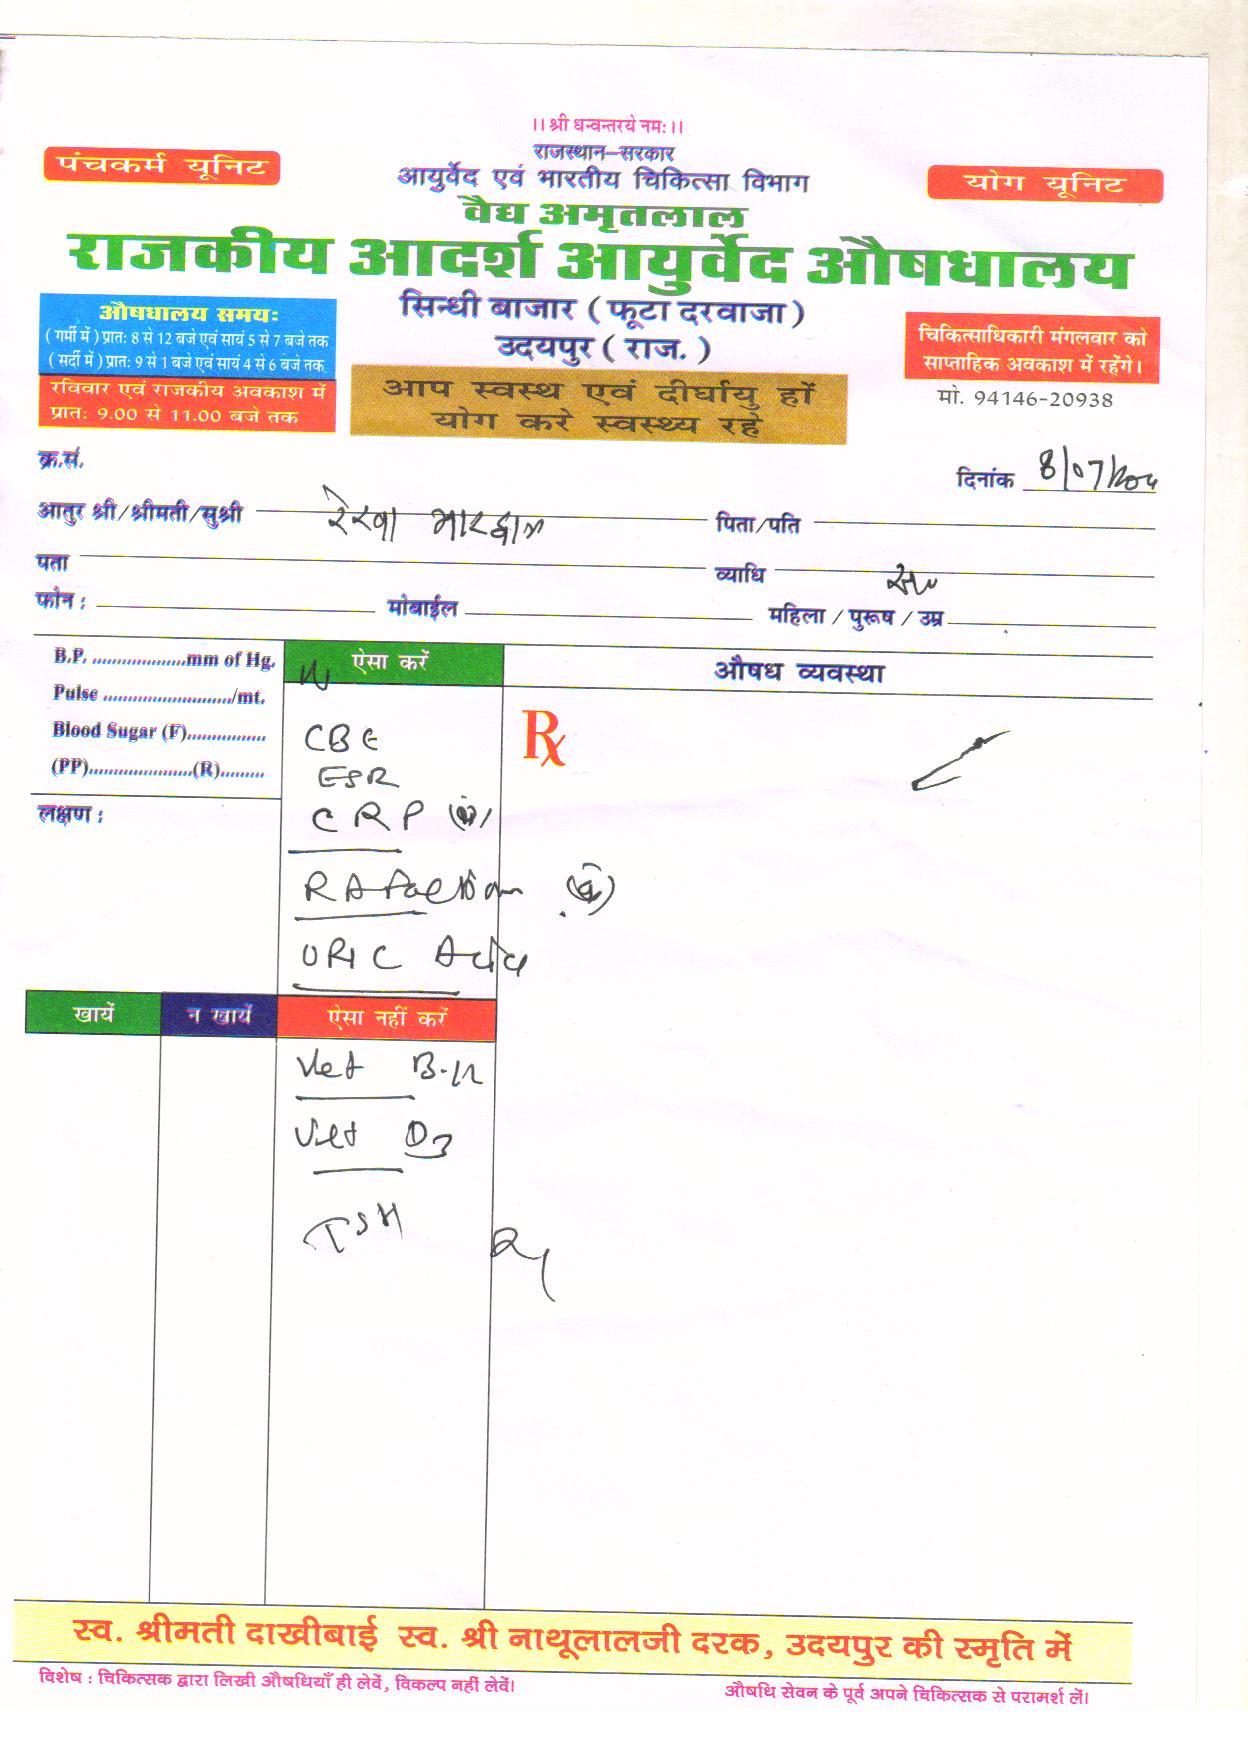 ।। श्री धन्वन्तरये नमः ।।
राजस्थान–सरकार
पंचकर्म यूनिट
आयुर्वेद एवं भारतीय चिकित्सा विभाग
योग यूनिट
वैद्य अमृतलाल
राजकीय आदर्श आयुर्वेद औषधालय
सिन्धी बाजार ( फूटा दरवाजा )
उदयपुर ( राज. )
औषधालय समयः
( गर्मी में ) प्रातः 8 से 12 बजे एवं सायं 5 से 7 बजे तक
( सर्दी में ) प्रातः 9 से 1 बजे एवं सायं 4 से 6 बजे तक
रविवार एवं राजकीय अवकाश में
प्रातः 9.00 से 11.00 बजे तक
आप स्वस्थ एवं दीर्घायु हों
योग करे स्वस्थ्य रहे
चिकित्साधिकारी मंगलवार को
साप्ताहिक अवकाश में रहेंगे।
मो. 94146-20938
क्र.सं.
दिनांक 8/07/
आतुर श्री/श्रीमती/सुश्री रेखा भारद्वाज पिता/पति
पता व्याधि
फोन : मोबाईल महिला / पुरूष / उम्र
B.P. ...................mm of Hg.
Pulse ........................../mt.
Blood Sugar (F)................
(PP).....................(R).........
लक्षण :
ऐसा करें
औषध व्यवस्था
Rx
CBC
ESR
CRP
RA Factor
URIC Acid
खायें न खायें ऐसा नहीं करें
Vit B-12
Vit D3
TSH
स्व. श्रीमती दाखीबाई स्व. श्री नाथूलालजी दरक, उदयपुर की स्मृति में
विशेष : चिकित्सक द्वारा लिखी औषधियाँ ही लेवें, विकल्प नहीं लेवें।
औषधि सेवन के पूर्व अपने चिकित्सक से परामर्श लें।